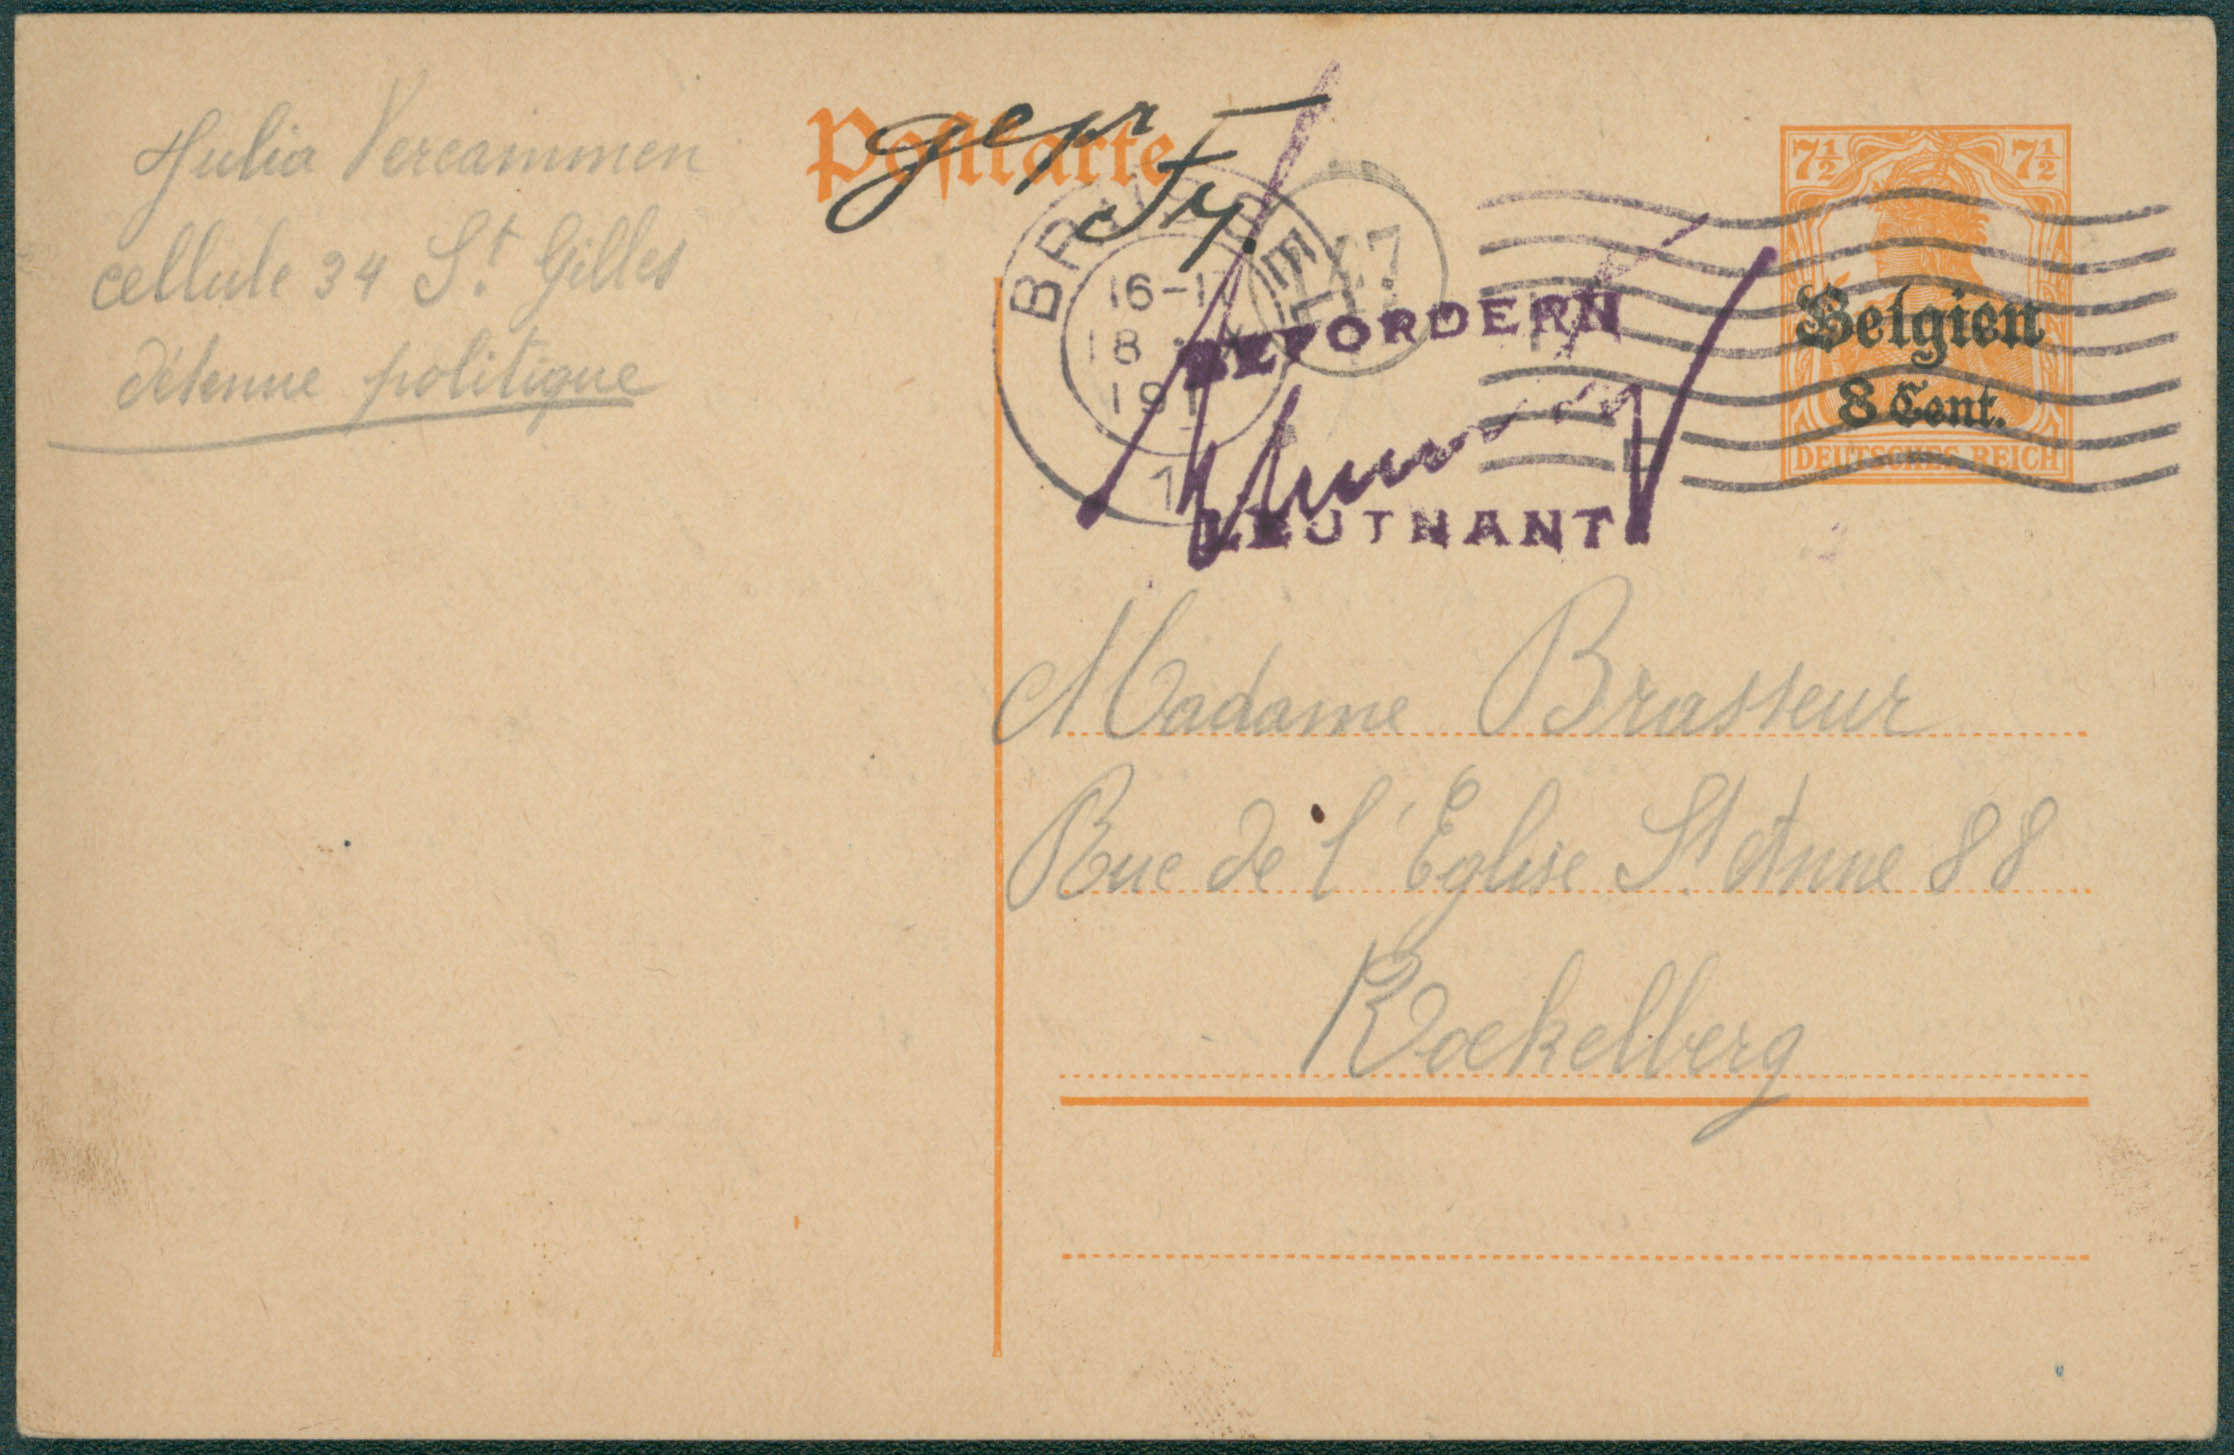 Julia Vercammen
cellule 34 St Gilles
détenue politique
Postkarte
gepr
Fy.
16-17
18
191
1
BEFÖRDERN
LEUTNANT
7½ 7½
Belgien
8 Cent.
DEUTSCHES REICH
Madame Brasseur
Rue de l'Eglise St Anne 88
Koekelberg